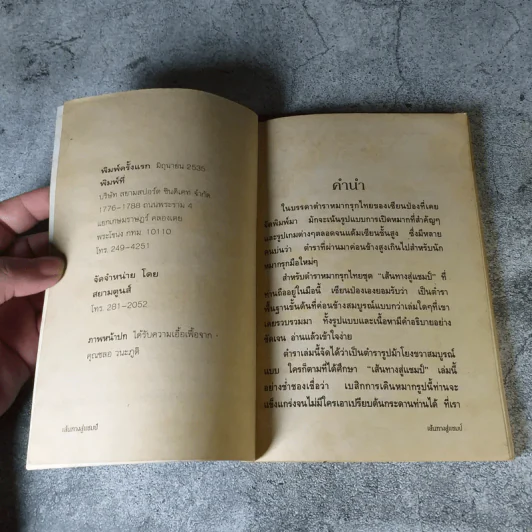 พิมพ์ครั้งแรก มิถุนายน 2535
พิมพ์ที่
บริษัท สยามสปอร์ต ซินดิเคท จำกัด
1776-1788 ถนนพระราม 4
แยกเกษมราษฎร์ คลองเตย
พระโขนง กทม. 10110
โทร. 249-4251
จัดจำหน่าย โดย
สยามตูนส์
โทร. 281-2052
ภาพหน้าปก ได้รับความเอื้อเฟื้อจาก
คุณชลอ วนะภูติ
เส้นทางสู่แชมป์
คำนำ
ในบรรดาตำราหมากรุกไทยของเซียนป๋องที่เคย
จัดพิมพ์มา มักจะเน้นรูปแบบการเปิดหมากที่สำคัญๆ
และรูปเกมต่างๆตลอดจนแต้มเซียนชั้นสูง ซึ่งมีหลาย
คนบ่นว่า ตำราที่ผ่านมาค่อนข้างสูงเกินไปสำหรับนัก
หมากรุกมือใหม่ๆ
สำหรับตำราหมากรุกไทยชุด "เส้นทางสู่แชมป์" ที่
ท่านถืออยู่ในมือนี้ เซียนป๋องเองยอมรับว่า เป็นตำรา
พื้นฐานขั้นต้นที่ค่อนข้างสมบูรณ์แบบกว่าเล่มใดๆที่เรา
เคยรวบรวมมา ทั้งรูปแบบและเนื้อหามีคำอธิบายอย่าง
ชัดเจน อ่านแล้วเข้าใจง่าย
ตำราเล่มนี้จัดได้ว่าเป็นตำรารูปม้าโยงขวาสมบูรณ์
แบบ ใครก็ตามที่ได้ศึกษา "เส้นทางสู่แชมป์" เล่มนี้
อย่างช่ำชองเชื่อว่า เบสิกการเดินหมากรูปนี้ท่านจะ
แข็งแกร่งจนไม่มีใครเอาเปรียบต้นกระดานท่านได้ ที่เรา
เส้นทางสู่แชมป์